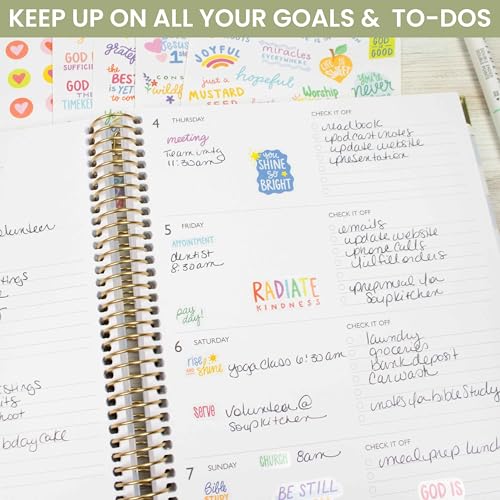 KEEP UP ON ALL YOUR GOALS & TO-DOS
GOD IS
SUFFICIENT
GOD IS THE
TIMEKEEPER
grateful
the BEST
IS YET
to come
JESUS
1st
JOYFUL
just a
MUSTARD
SEED
MIRACLES
EVERYWHERE
hopeful
LIFE IS
SWEET
Worship
GOD IS
GOOD
You're
never
4 THURSDAY
meeting
Team mtg
11:30am
YOU
SHINE
SO
BRIGHT
CHECK IT OFF
read book
podcast notes
update website
presentation
5 FRIDAY
APPOINTMENT
dentist
8:30am
pay
day!
RADIATE
KINDNESS
CHECK IT OFF
emails
update website
phone calls
fulfill orders
prep meal for
Soup kitchen
6 SATURDAY
rise
AND SHINE
yoga class 6:30am
SERVE
volunteer @
Soup kitchen
CHECK IT OFF
laundry
groceries
bank deposit
car wash
notes for bible study
7 SUNDAY
CHURCH 8am
Bible
STUDY
BE STILL
CHECK IT OFF
meal prep lunch
GOD IS
volunteer
bday cake